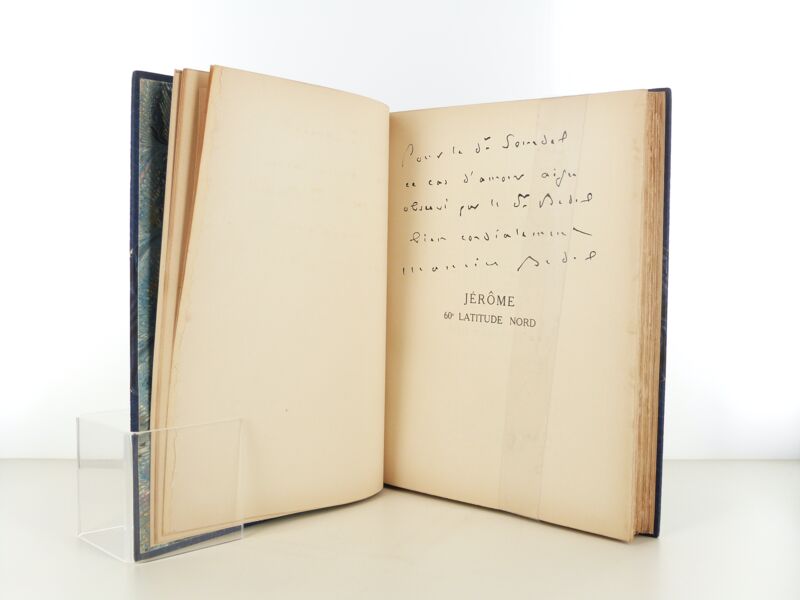 Pour le Dr Sourdel
ce cas d'amour aigu
observé par le Dr Bedel
bien cordialement
Maurice Bedel
JÉRÔME
60e LATITUDE NORD